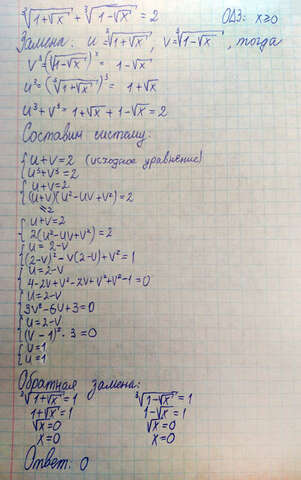 ∛(1+√x) + ∛(1-√x) = 2 ОДЗ: x≥0
Замена: u = ∛(1+√x), v = ∛(1-√x), тогда
v³ = (∛(1-√x))³ = 1-√x
u³ = (∛(1+√x))³ = 1+√x
u³ + v³ = 1+√x + 1-√x = 2
Составим систему:
{ u+v=2 (исходное уравнение)
u³+v³=2
{ u+v=2
(u+v)(u²-uv+v²)=2
=2
{ u+v=2
2(u²-uv+v²)=2
{ u=2-v
(2-v)²-v(2-v)+v²=1
{ u=2-v
4-2v+v²-2v+v²+v²-1=0
{ u=2-v
3v²-6v+3=0
{ u=2-v
(v-1)²·3=0
{ v=1
u=1
Обратная замена:
∛(1+√x)=1 ∛(1-√x)=1
1+√x=1 1-√x=1
√x=0 √x=0
x=0 x=0
Ответ: 0